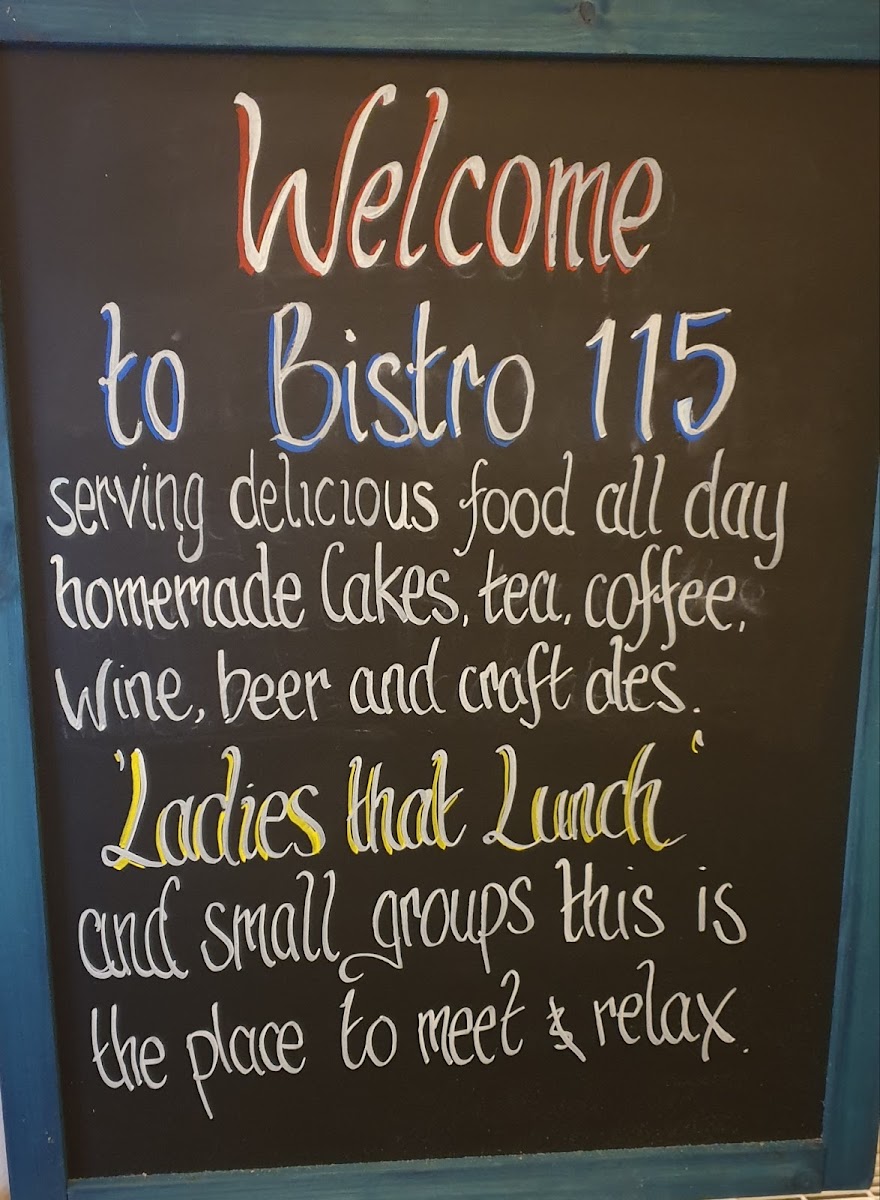 Welcome
to Bistro 115
serving delicious food all day
homemade Cakes, tea, coffee,
Wine, beer and craft ales.
'Ladies that Lunch'
and small groups this is
the place to meet & relax.